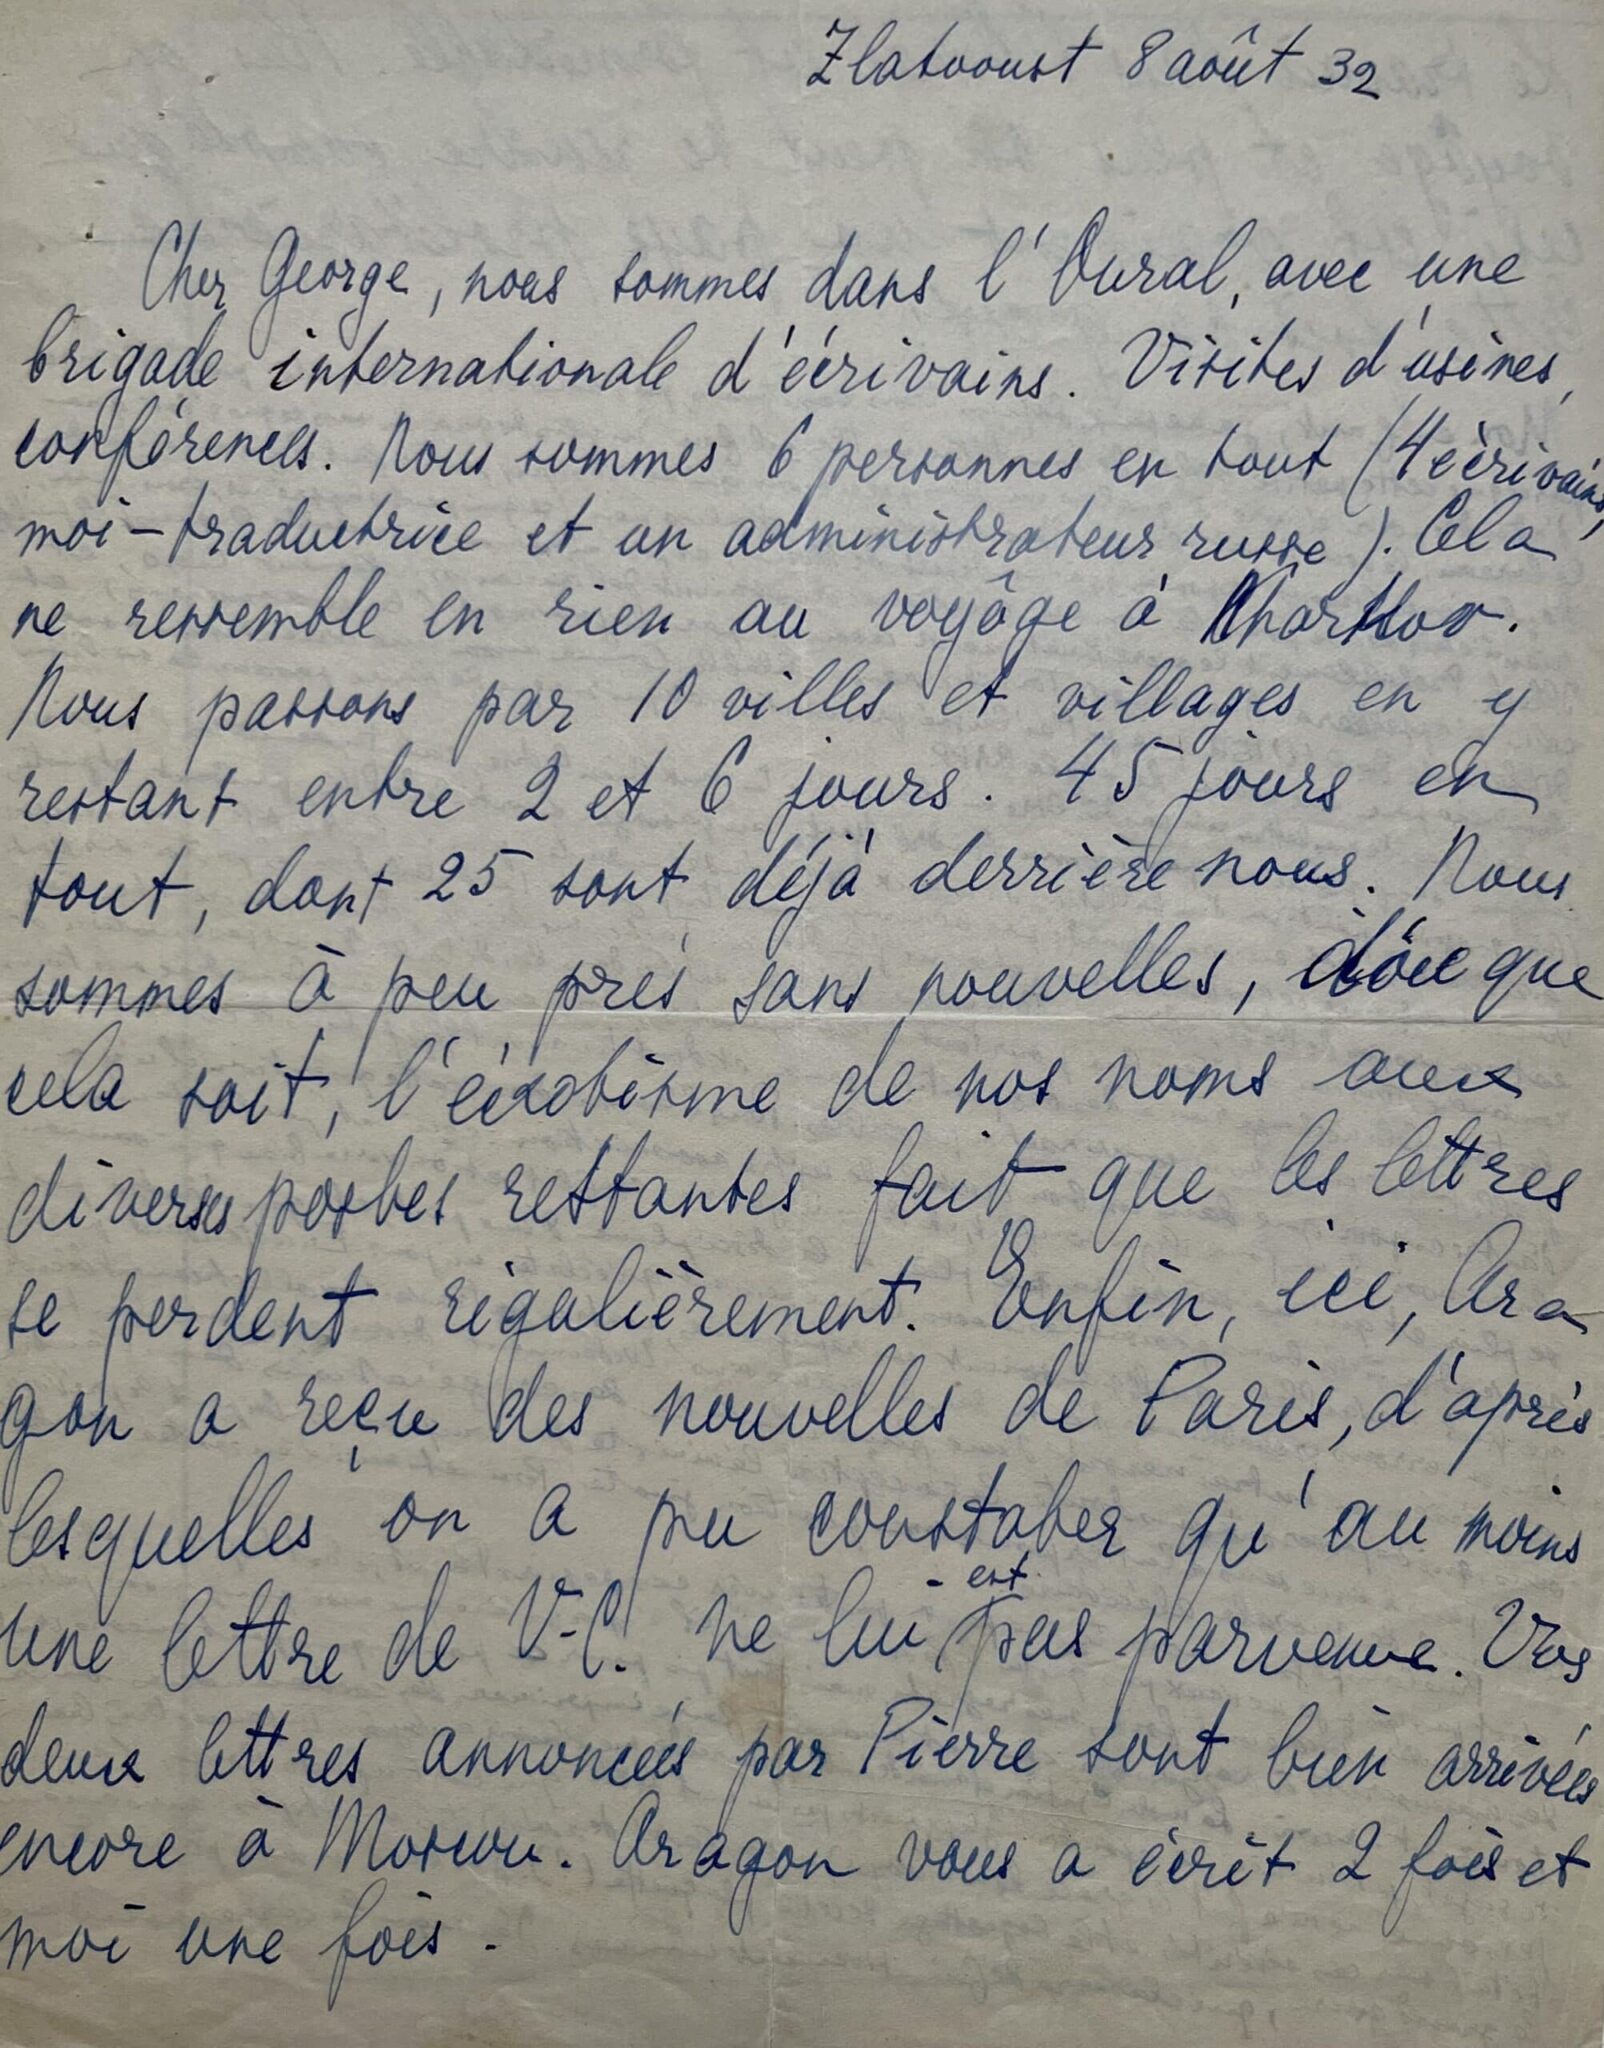 Zlatooust 8 août 32
Cher George, nous sommes dans l'Oural, avec une
brigade internationale d'écrivains. Visites d'usines,
conférences. Nous sommes 6 personnes en tout (4 écrivains,
moi-traductrice et un administrateur russe). Cela
ne ressemble en rien au voyâge à Kharkov.
Nous passons par 10 villes et villages en y
restant entre 2 et 6 jours. 45 jours en
tout, dont 25 sont déjà derrière nous. Nous
sommes à peu près sans nouvelles, que
cela soit, l'éxotisme de nos noms aux
diverses postes restantes fait que les lettres
se perdent régulièrement. Enfin, ici, Ara
gon a reçu des nouvelles de Paris, d'après
lesquelles on a pu constater qu'au moins
une lettre de V-C. ne lui est pas parvenue. Vos
deux lettres annoncées par Pierre sont bien arrivées
encore à Moscou. Aragon vous a écrit 2 fois et
moi une fois.